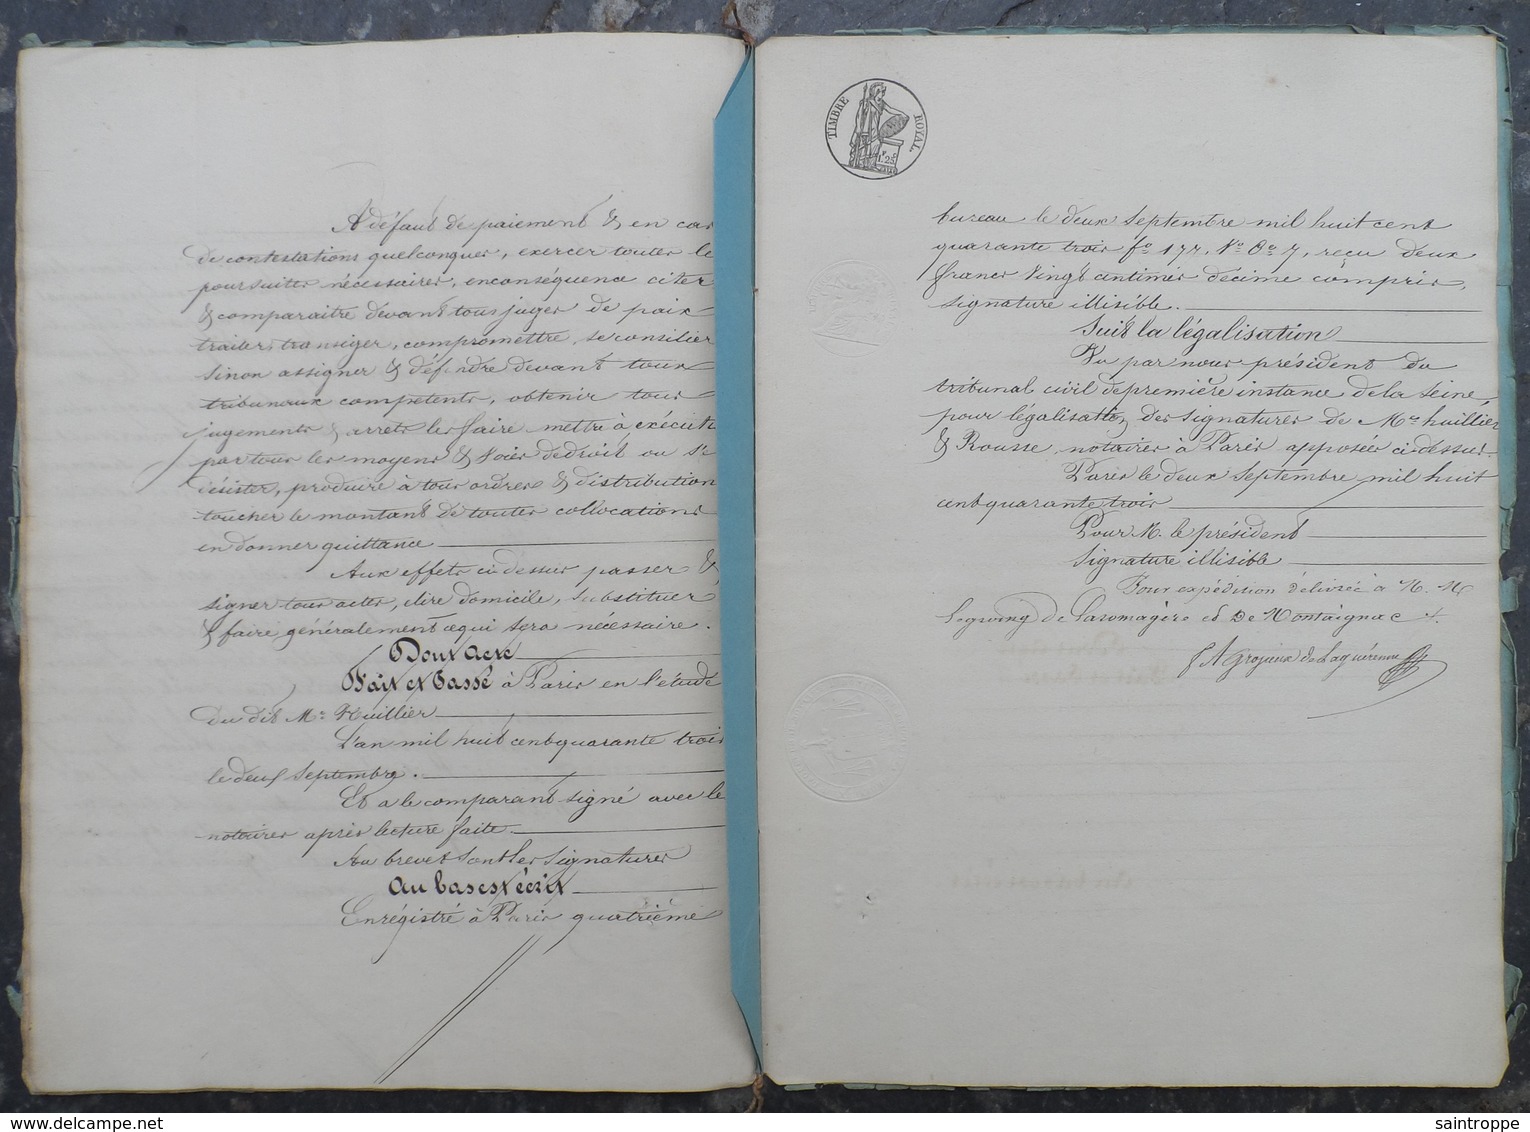 A défaut de paiement & en cas
de contestations quelconques, exercer toutes le
poursuites nécessaires, en conséquence citer
& comparaitre devant tous juges de paix
traiter, transiger, compromettre, se consilier
sinon assigner & défendre devant tous
tribunaux compétents, obtenir tous
jugements & arrets les faire mettre à exécuti
par tous les moyens & voies de droit ou s'e
désister, produire à tous ordres & distribution
toucher le montant de toutes collocations
en donner quittance
Aux effets ci dessus passer &
signer tous actes, élire domicile, substituer
& faire généralement ce qui sera nécessaire.
Dont Acte
Fait et Passé à Paris en l'étude
du dit Me Huillier
L'an mil huit cent quarante trois
le deux septembre.
Et a le comparant signé avec le
notaires après lecture faite
Au brevet sont les signatures
Au bas est écrit
Enrégistré à Paris quatrième
TIMBRE ROYAL
1F 25C
bureau le deux septembre mil huit cent
quarante trois fo 177, Vo Ce 7, reçu deux
francs vingt centimes décime compris,
signature illisible.
Suit la légalisation
Vu par nous président du
tribunal civil de première instance de la Seine,
pour légalisation des signatures de Me huillier
& Rousse, notaires à Paris apposées ci dessus
Paris le deux septembre mil huit
cent quarante trois
Pour M. le président
signature illisible
Pour expédition délivrée à M. M
de et De Montaignac
de Laguérenne
saintroppe